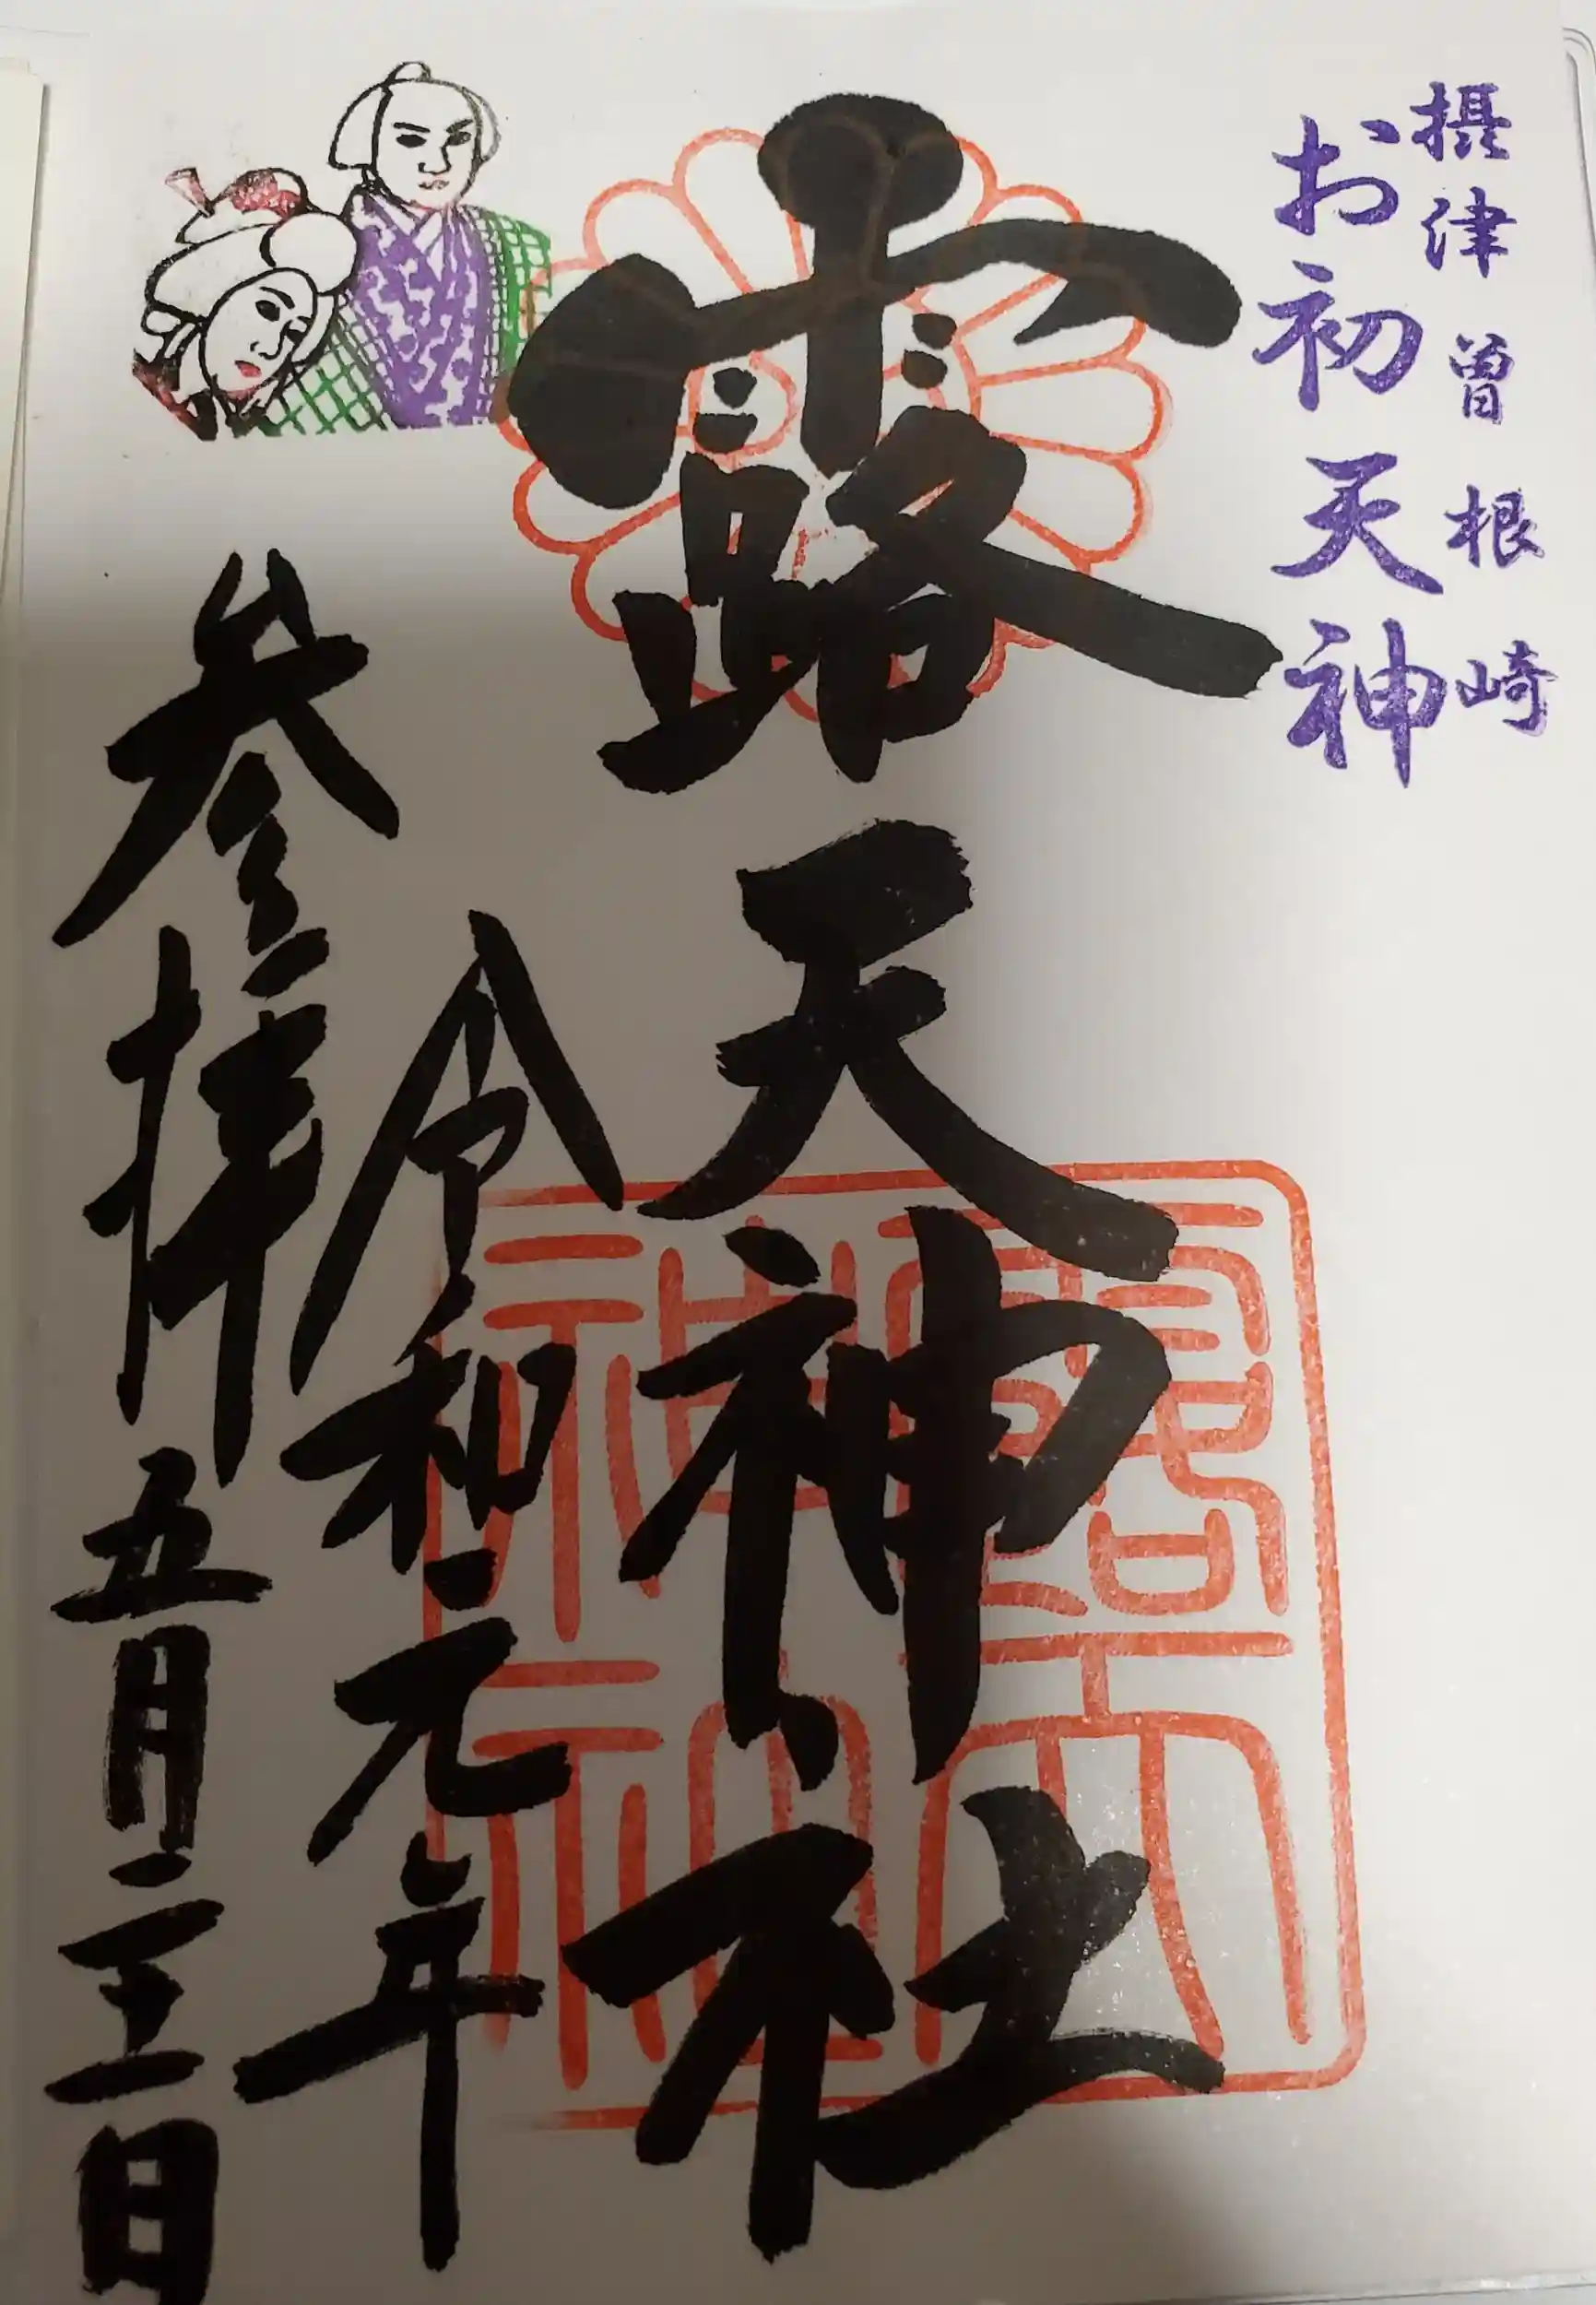 摂津曽根崎
お初天神
露天神社
露天
神社
令和元年
参拝 五月三日